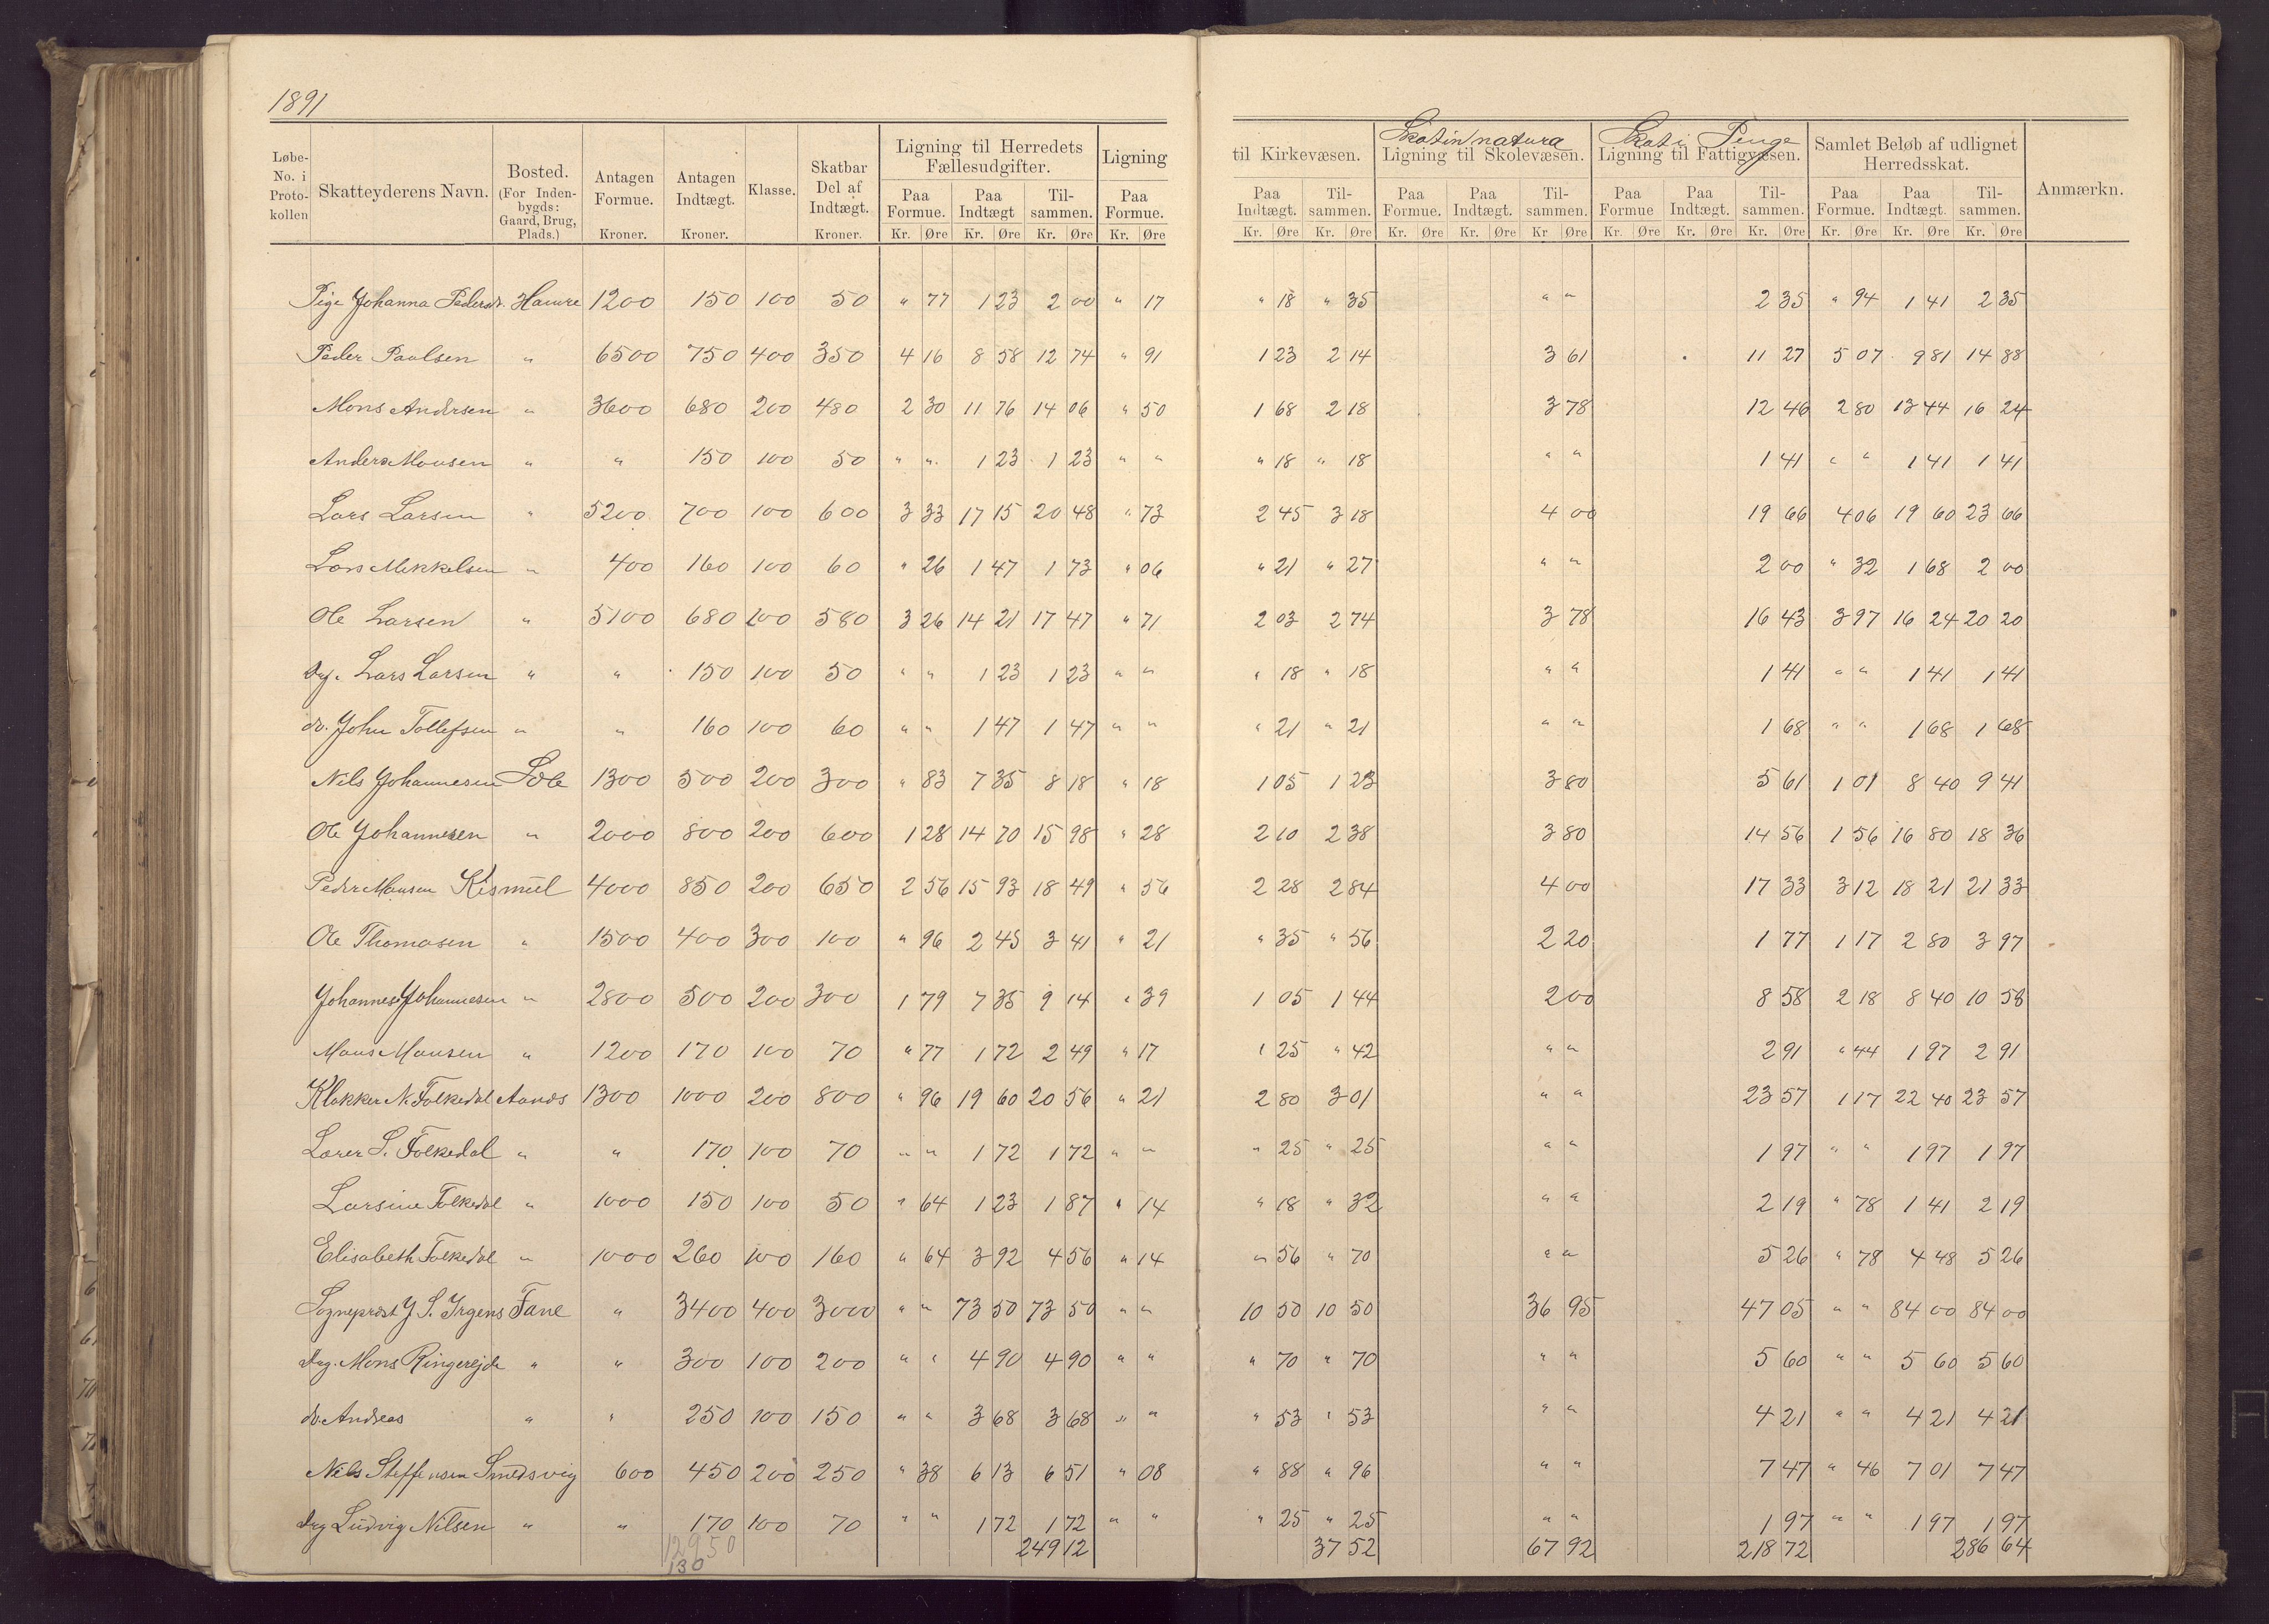 1891
Løbe-No. i Proto-kollen | Skatteyderens Navn. | Bosted. (For Inden-bygds: Gaard, Brug, Plads.) | Antagen Formue. Kroner. | Antagen Indtægt. Kroner. | Klasse. | Skatbar Del af Indtægt. Kroner. | Ligning til Herredets Fællesudgifter. Paa Formue. Kr. Øre | Paa Indtægt Kr. Øre | Til-sammen. Kr. Øre | Ligning Paa Formue. Kr. Øre | til Kirkevæsen. Paa Indtægt. Kr. Øre | Til-sammen. Kr. Øre | Skat in natura Ligning til Skolevæsen. Paa Formue. Kr. Øre | Paa Indtægt. Kr. Øre | Til-sammen. Kr Øre | Skat i Penge Ligning til Fattigvæsen. Paa Formue Kr. Øre | Paa Indtægt. Kr. Øre | Til-sammen. Kr. Øre | Samlet Beløb af udlignet Herredsskat. Paa Formue. Kr. Øre | Paa Indtægt. Kr. Øre | Til-sammen. Kr. Øre | Anmærkn.
Pige Johanna Pedersdr. Hauvre 1200 150 100 50 " 77 1 23 2 00 " 17 " 18 " 35 " " 2 35 " 94 1 41 2 35
Peder Paulsen " 6500 750 400 350 4 16 8 58 12 74 " 91 1 23 2 14 3 61 11 27 5 07 9 81 14 88
Mons Andersen " 3600 680 200 480 2 30 11 76 14 06 " 50 1 68 2 18 3 78 12 46 2 80 13 44 16 24
Anders Monsen " " 150 100 50 " " 1 23 1 23 " " " 18 " 18 " " 1 41 " " 1 41 1 41
Lars Larsen " 5200 700 100 600 3 33 17 15 20 48 " 73 2 45 3 18 4 00 19 66 4 06 19 60 23 66
Lars Mikkelsen " 400 160 100 60 " 26 1 47 1 73 " 06 " 21 " 27 " " 2 00 " 32 1 68 2 00
Ole Larsen " 5100 680 100 580 3 26 14 21 17 47 " 71 2 03 2 74 3 78 16 43 3 97 16 24 20 20
Dg. Lars Larsen " " 150 100 50 " " 1 23 1 23 " " " 18 " 18 " " 1 41 " " 1 41 1 41
do. John Tollefsen " " 160 100 60 " " 1 47 1 47 " " " 21 " 21 " " 1 68 " " 1 68 1 68
Nils Johannesen Søle 1300 500 200 300 " 83 7 35 8 18 " 18 1 05 1 23 3 80 5 61 1 01 8 40 9 41
Ole Johannesen " 2000 800 200 600 1 28 14 70 15 98 " 28 2 10 2 38 3 80 14 56 1 56 16 80 18 36
Peder Monsen Kismul 4000 850 200 650 2 56 15 93 18 49 " 56 2 28 2 84 4 00 17 33 3 12 18 21 21 33
Ole Thomasen " 1500 400 300 100 " 96 2 45 3 41 " 21 " 35 " 56 2 20 1 77 1 17 2 80 3 97
Johannes Johannesen " 2800 500 200 300 1 79 7 35 9 14 " 39 1 05 1 44 2 00 8 58 2 18 8 40 10 58
Mons Monsen " 1200 170 100 70 " 77 1 72 2 49 " 17 " 25 " 42 " " 2 91 " 44 1 97 2 91
Klokker N. Folkedal Aands 1300 1000 200 800 " 96 19 60 20 56 " 21 2 80 3 01 " " 23 57 1 17 22 40 23 57
Lærer S. Folkedal " " 170 100 70 " " 1 72 1 72 " " " 25 " 25 " " 1 97 " " 1 97 1 97
Larsine Folkedal " 1000 150 100 50 " 64 1 23 1 87 " 14 " 18 " 32 " " 2 19 " 78 1 41 2 19
Elisabeth Folkedal " 1000 260 100 160 " 64 3 92 4 56 " 14 " 56 " 70 " " 5 26 " 78 4 48 5 26
Sogneprest J. S. Irgens Fane " 3400 400 3000 " " 73 50 73 50 " " 10 50 10 50 36 95 47 05 " " 84 00 84 00
Dreg. Mons Ringerejde " " 300 100 200 " " 4 90 4 90 " " " 70 " 70 " " 5 60 " " 5 60 5 60
do. Andreas " " 250 100 150 " " 3 68 3 68 " " " 53 " 53 " " 4 21 " " 4 21 4 21
Nils Steffensen Smedsvig 600 450 200 250 " 38 6 13 6 51 " 08 " 88 " 96 " " 7 47 " 46 7 01 7 47
Dreg Ludvig Nilsen " " 170 100 70 " " 1 72 1 72 " " " 25 " 25 " " 1 97 " " 1 97 1 97
12950 249 12 37 52 67 92 218 72 286 64
130